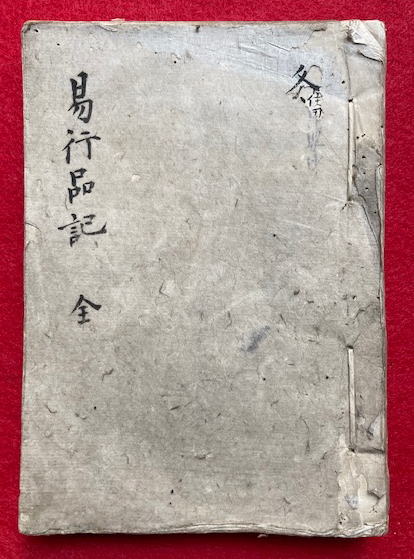 易行品記 全